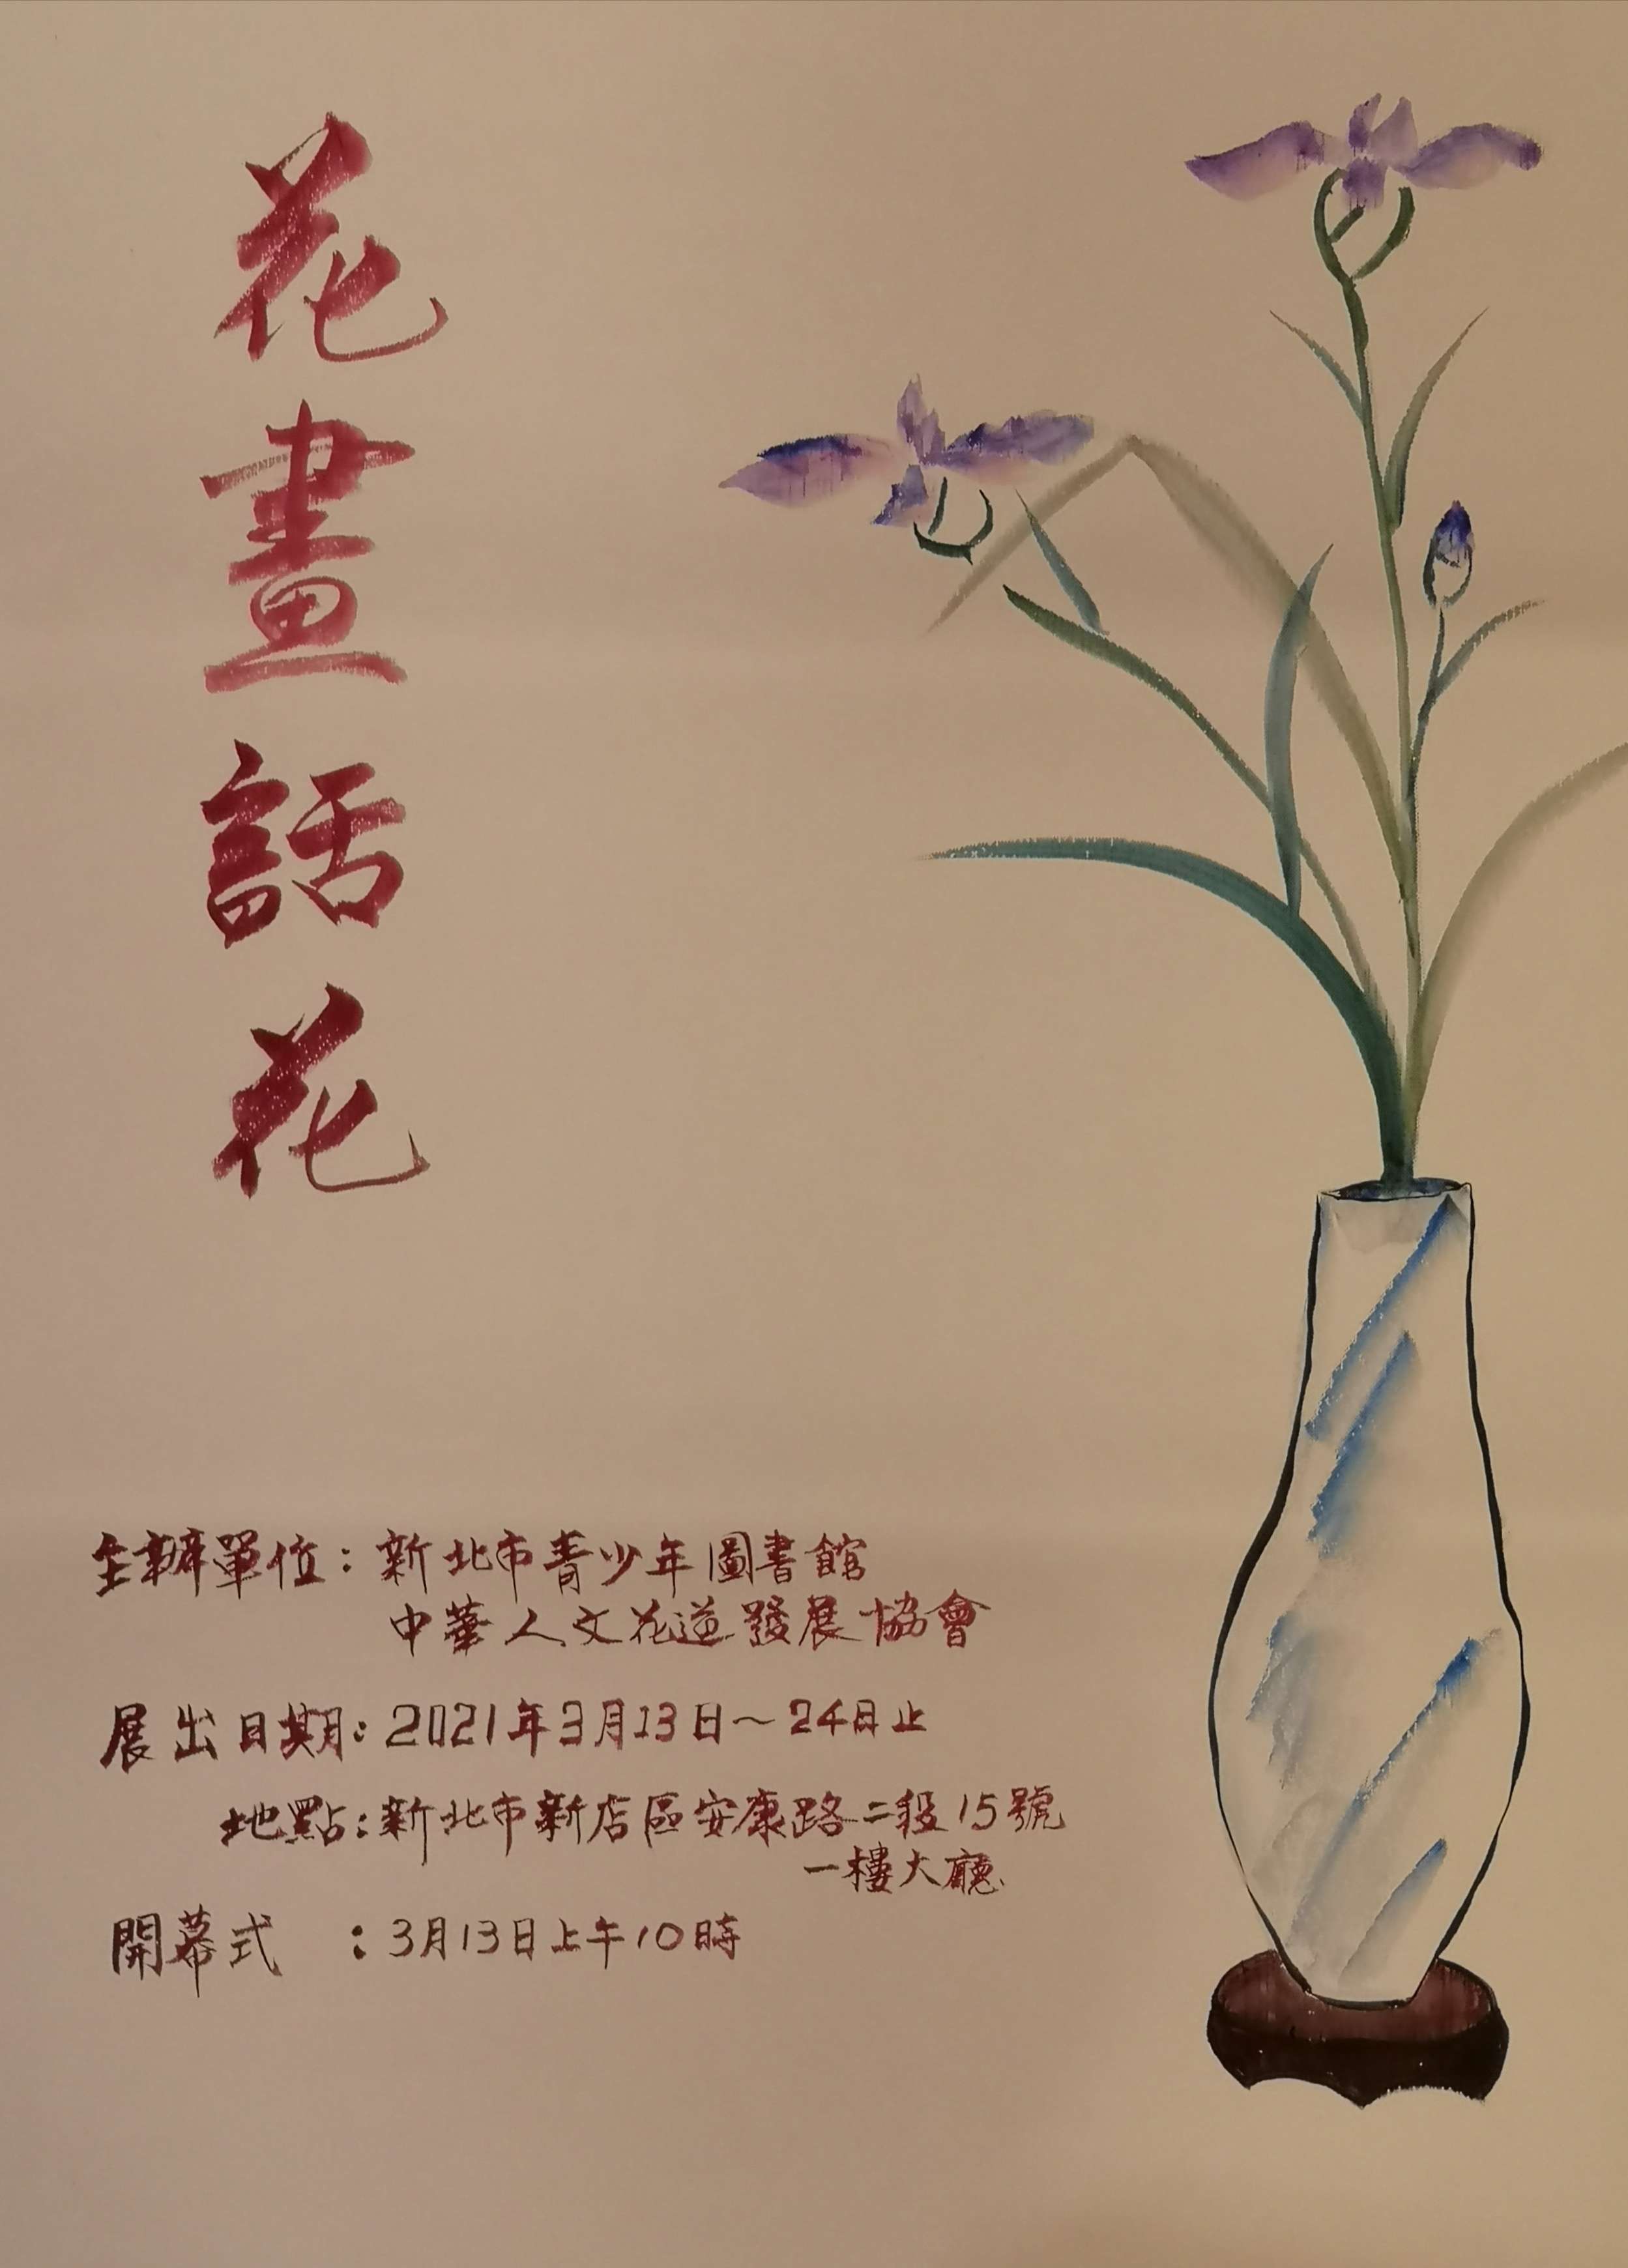 花畫話花
主辦單位：新北市青少年圖書館
中華人文花道發展協會
展出日期：2021年3月13日～24日止
地點：新北市新店區安康路二段15號
一樓大廳
開幕式　：3月13日上午10時